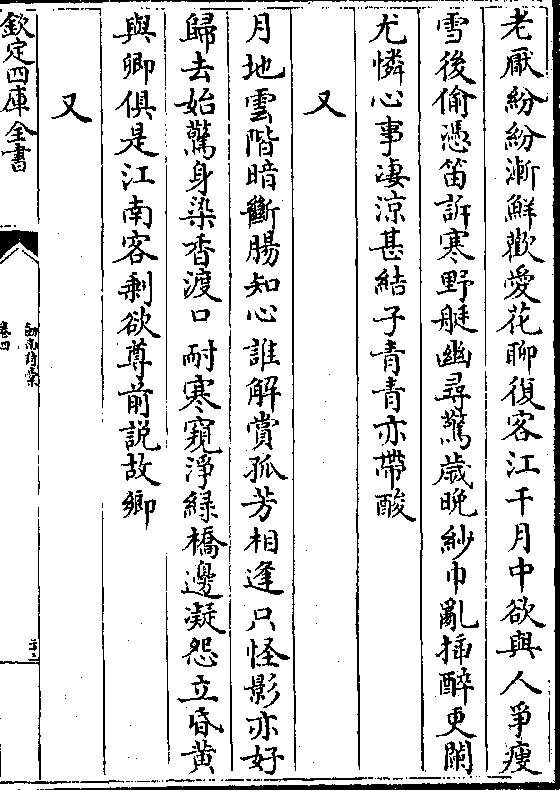 老厭紛紛漸鮮歡愛花聊復客江干月中欲與人爭瘦
雪後偷憑笛訴寒野艇幽尋驚歲晚紗巾亂揷醉更闌
尤憐心事凄涼甚結子青青亦帶酸
又
月地雲階暗斷腸知心誰解賞孤芳相逢只怪影亦好
歸去始驚身染香渡口耐寒窺淨綠橋邊凝怨立昏黄
與卿俱是江南客剰欲尊前説故鄉
又
欽定四庫全書
劍南詩槀
卷四
二十二